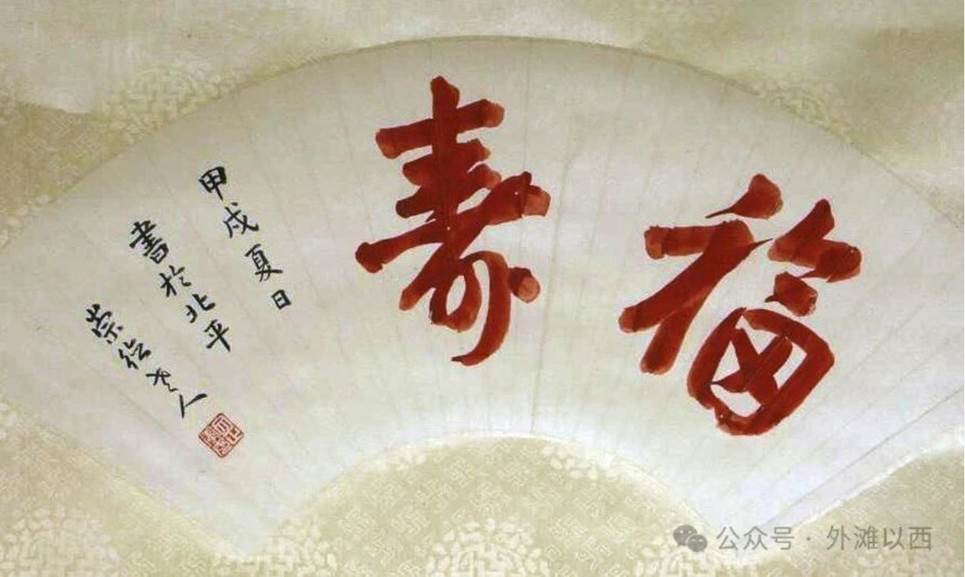 福壽
甲戌夏日
書於北平
崇绘老人
公众号 · 外滩以西